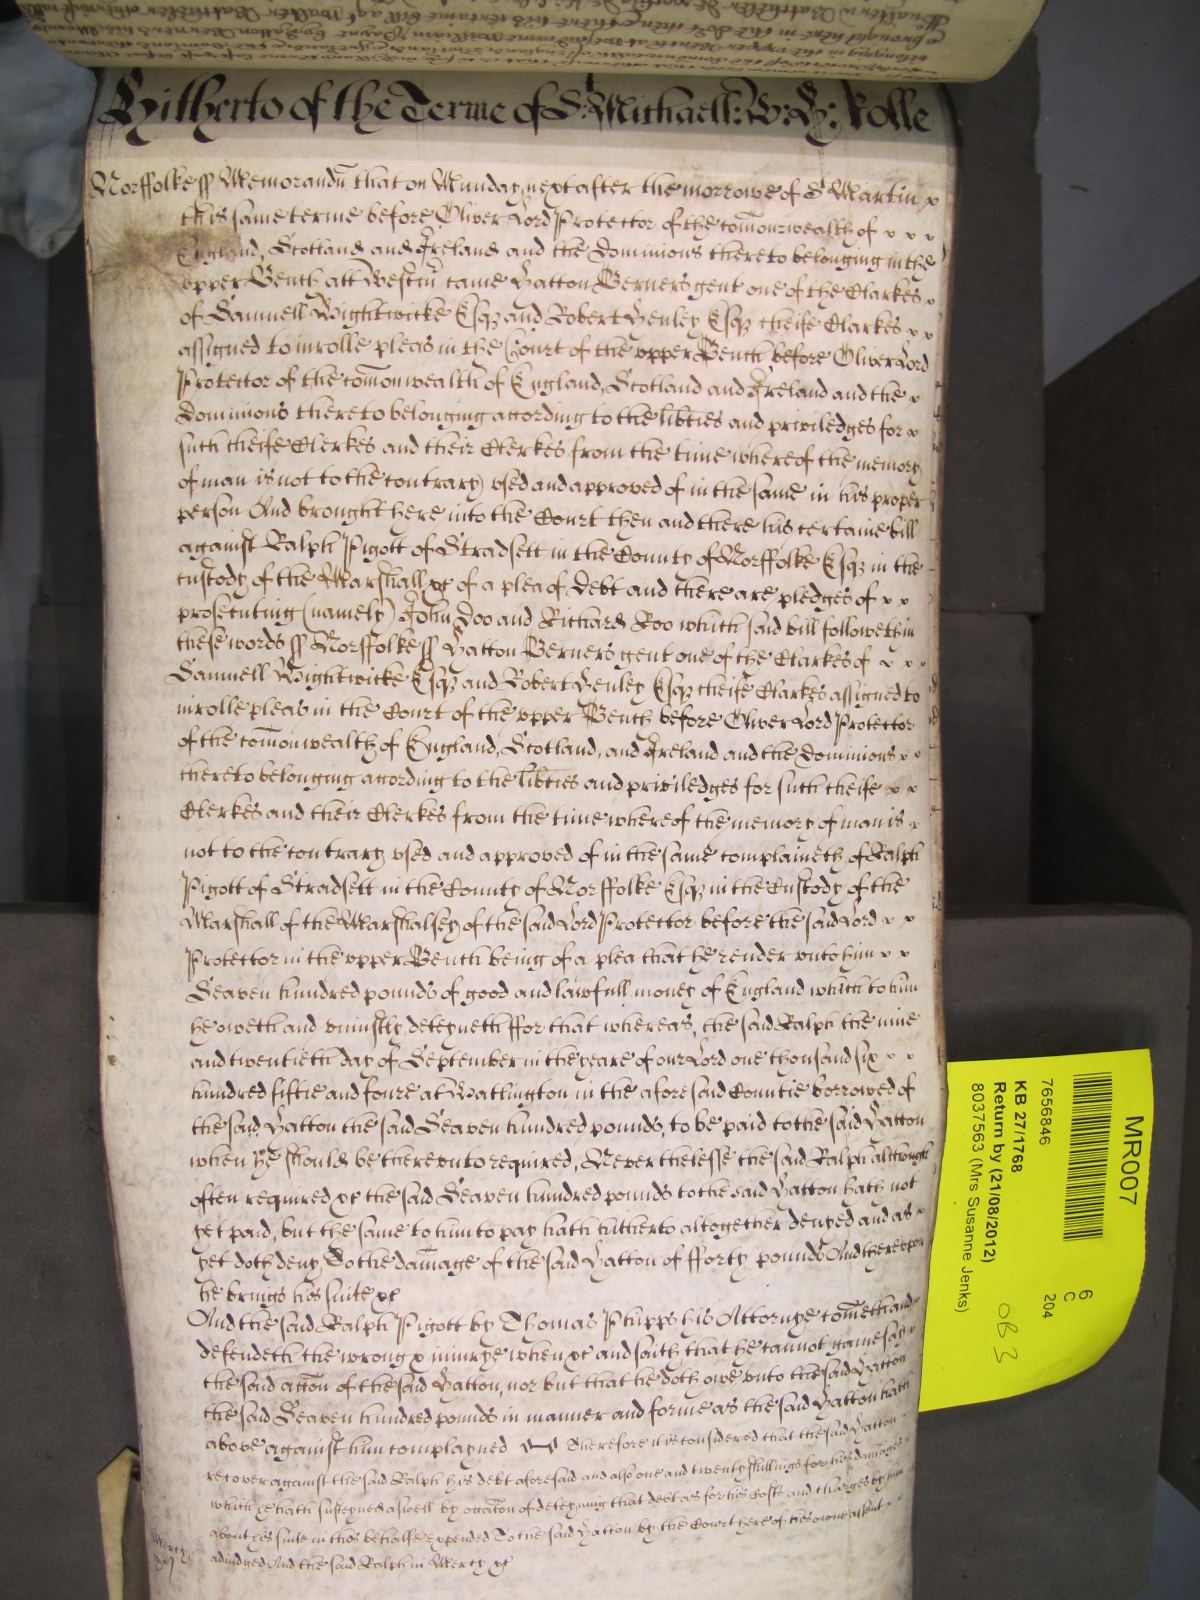 Hitherto of the Terme of St Michaell: W: H: Rolle
Norffolke ss Memorandu that on Munday next after the morrowe of St Martin x
this same terme before Oliver Lord Protector of the comonwealth of x x x
England, Scotland and Ireland and the Dominions thereto belonging in the
upper Bench att Westm came Hatton Berners gent one of the Clarkes x
of Samuell Wightwicke Esqr and Robert Henley Esqr cheife Clarkes x x
assigned to inrolle pleas in the Court of the upper Bench before Oliver Lord
Protector of the comonwealth of England, Scotland and Ireland and the x
Dominions thereto belonging acording to the libties and priviledges for x
such cheife Clerkes and their Clerkes from the time whereof the memory
of man is not to the contrary used and approved of in the same in his proper
person And brought here into the Court then and there his certaine bill
against Ralph Pigott of Stradsett in the County of Norffolke Esqr in the
custody of the Marshall &c of a plea of Debt and there are pledges of x x
prosecuting (namely) John Doo and Richard Roo which said bill followeth in
these words ss Norffolke ss Hatton Berners gent one of the Clarkes of x x x
Samuell Wightwicke Esqr and Robert Henley Esqr cheife Clarkes assigned to
inrolle pleas in the Court of the upper Bench before Oliver Lord Protector
of the comonwealth of England, Scotland, and Ireland and the Dominions x x
thereto belonging acording to the libties and priviledges for such cheife x x
Clerkes and their Clerkes from the time whereof the memory of man is x
not to the contrary used and approved of in the same complaineth of Ralph
Pigott of Stradsett in the County of Norffolke Esqr in the Custody of the
Marshall of the Marshalsey of the said Lord Protector before the said Lord x x
Protector in the upper Bench being of a plea that he render unto him x x
Seaven hundred pounds of good and lawfull money of England which to him
he oweth and uniustly deteyneth ffor that whereas, the said Ralph the nine
and twentieth day of September in the yeare of our Lord one thousand six x x
hundred fiftie and foure at Watlington in the aforesaid Countie borrowed of
the said Hatton the said Seaven hundred pounds, to be paid to the said Hatton
when he should be thereunto required, Neverthelesse the said Ralph although
often required &c the said Seaven hundred pounds to the said Hatton hath not
yet paid, but the same to him to pay hath hitherto altogether denyed and as x
yet doth deny To the damage of the said Hatton of fforty pounds And thereupon
he brings his suite &c
And the said Ralph Pigott by Thomas Phipps his Attorny cometh and
defendeth the wrong & iniurye when &c and saith that he cannot gainesay
the said accon of the said Hatton, nor but that he doth owe unto the said Hatton
the said Seaven hundred pounds in manner and forme as the said Hatton hath
above against him complayned Therefore it is considered that the said Hatton
recover against the said Ralph his debt aforesaid and also one and twenty shillings for his damages
which he hath susteyned aswell by occacon of deteyning that debt as for his Costs and charges by him
about his suite in this behalfe expended To the said Hatton by the Court here of his owne assent
adiudged And the said Ralph in Mercy &c
MR007
7656846
6
C
204
KB 27/1768
Return by (21/08/2012)
8037563 (Mrs Susanne Jenks)
OB 3